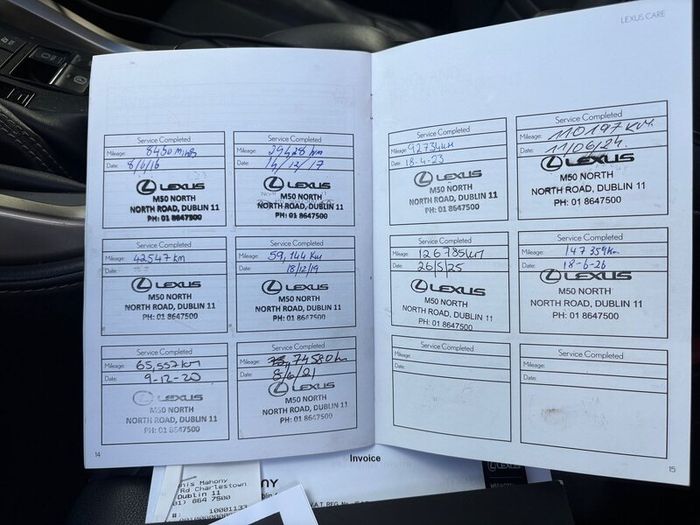 LEXUS CARE
Service Completed
Mileage: 8450 Miles
Date: 8/6/16
LEXUS
M50 NORTH
NORTH ROAD, DUBLIN 11
PH: 01 8647500
Service Completed
Mileage: 29428 km
Date: 14/12/17
LEXUS
M50 NORTH
NORTH ROAD, DUBLIN 11
PH: 01 8647500
Service Completed
Mileage: 42547 km
Date:
LEXUS
M50 NORTH
NORTH ROAD, DUBLIN 11
PH: 01 8647500
Service Completed
Mileage: 59,144 Km
Date: 18/12/19
LEXUS
M50 NORTH
NORTH ROAD, DUBLIN 11
PH: 01 8647500
Service Completed
Mileage: 65,557 km
Date: 9-12-20
LEXUS
M50 NORTH
NORTH ROAD, DUBLIN 11
PH: 01 8647500
Service Completed
Mileage: 74580
Date: 8/6/21
LEXUS
M50 NORTH
NORTH ROAD, DUBLIN 11
PH: 01 8647500
14
Service Completed
Mileage: 92734km
Date: 18-4-23
LEXUS
M50 NORTH
NORTH ROAD, DUBLIN 11
PH: 01 8647500
Service Completed
Mileage: 110197 KM.
Date: 11/06/24.
LEXUS
M50 NORTH
NORTH ROAD, DUBLIN 11
PH: 01 8647500
Service Completed
Mileage: 126785km
Date: 26/5/25
LEXUS
M50 NORTH
NORTH ROAD, DUBLIN 11
PH: 01 8647500
Service Completed
Mileage: 147359km
Date: 18-6-26
LEXUS
M50 NORTH
NORTH ROAD, DUBLIN 11
PH: 01 8647500
Service Completed
Mileage:
Date:
Service Completed
Mileage:
Date:
15
Invoice
nis Mahony
Rd Charlestown
Dublin 11
01) 864 7500
# 10001133